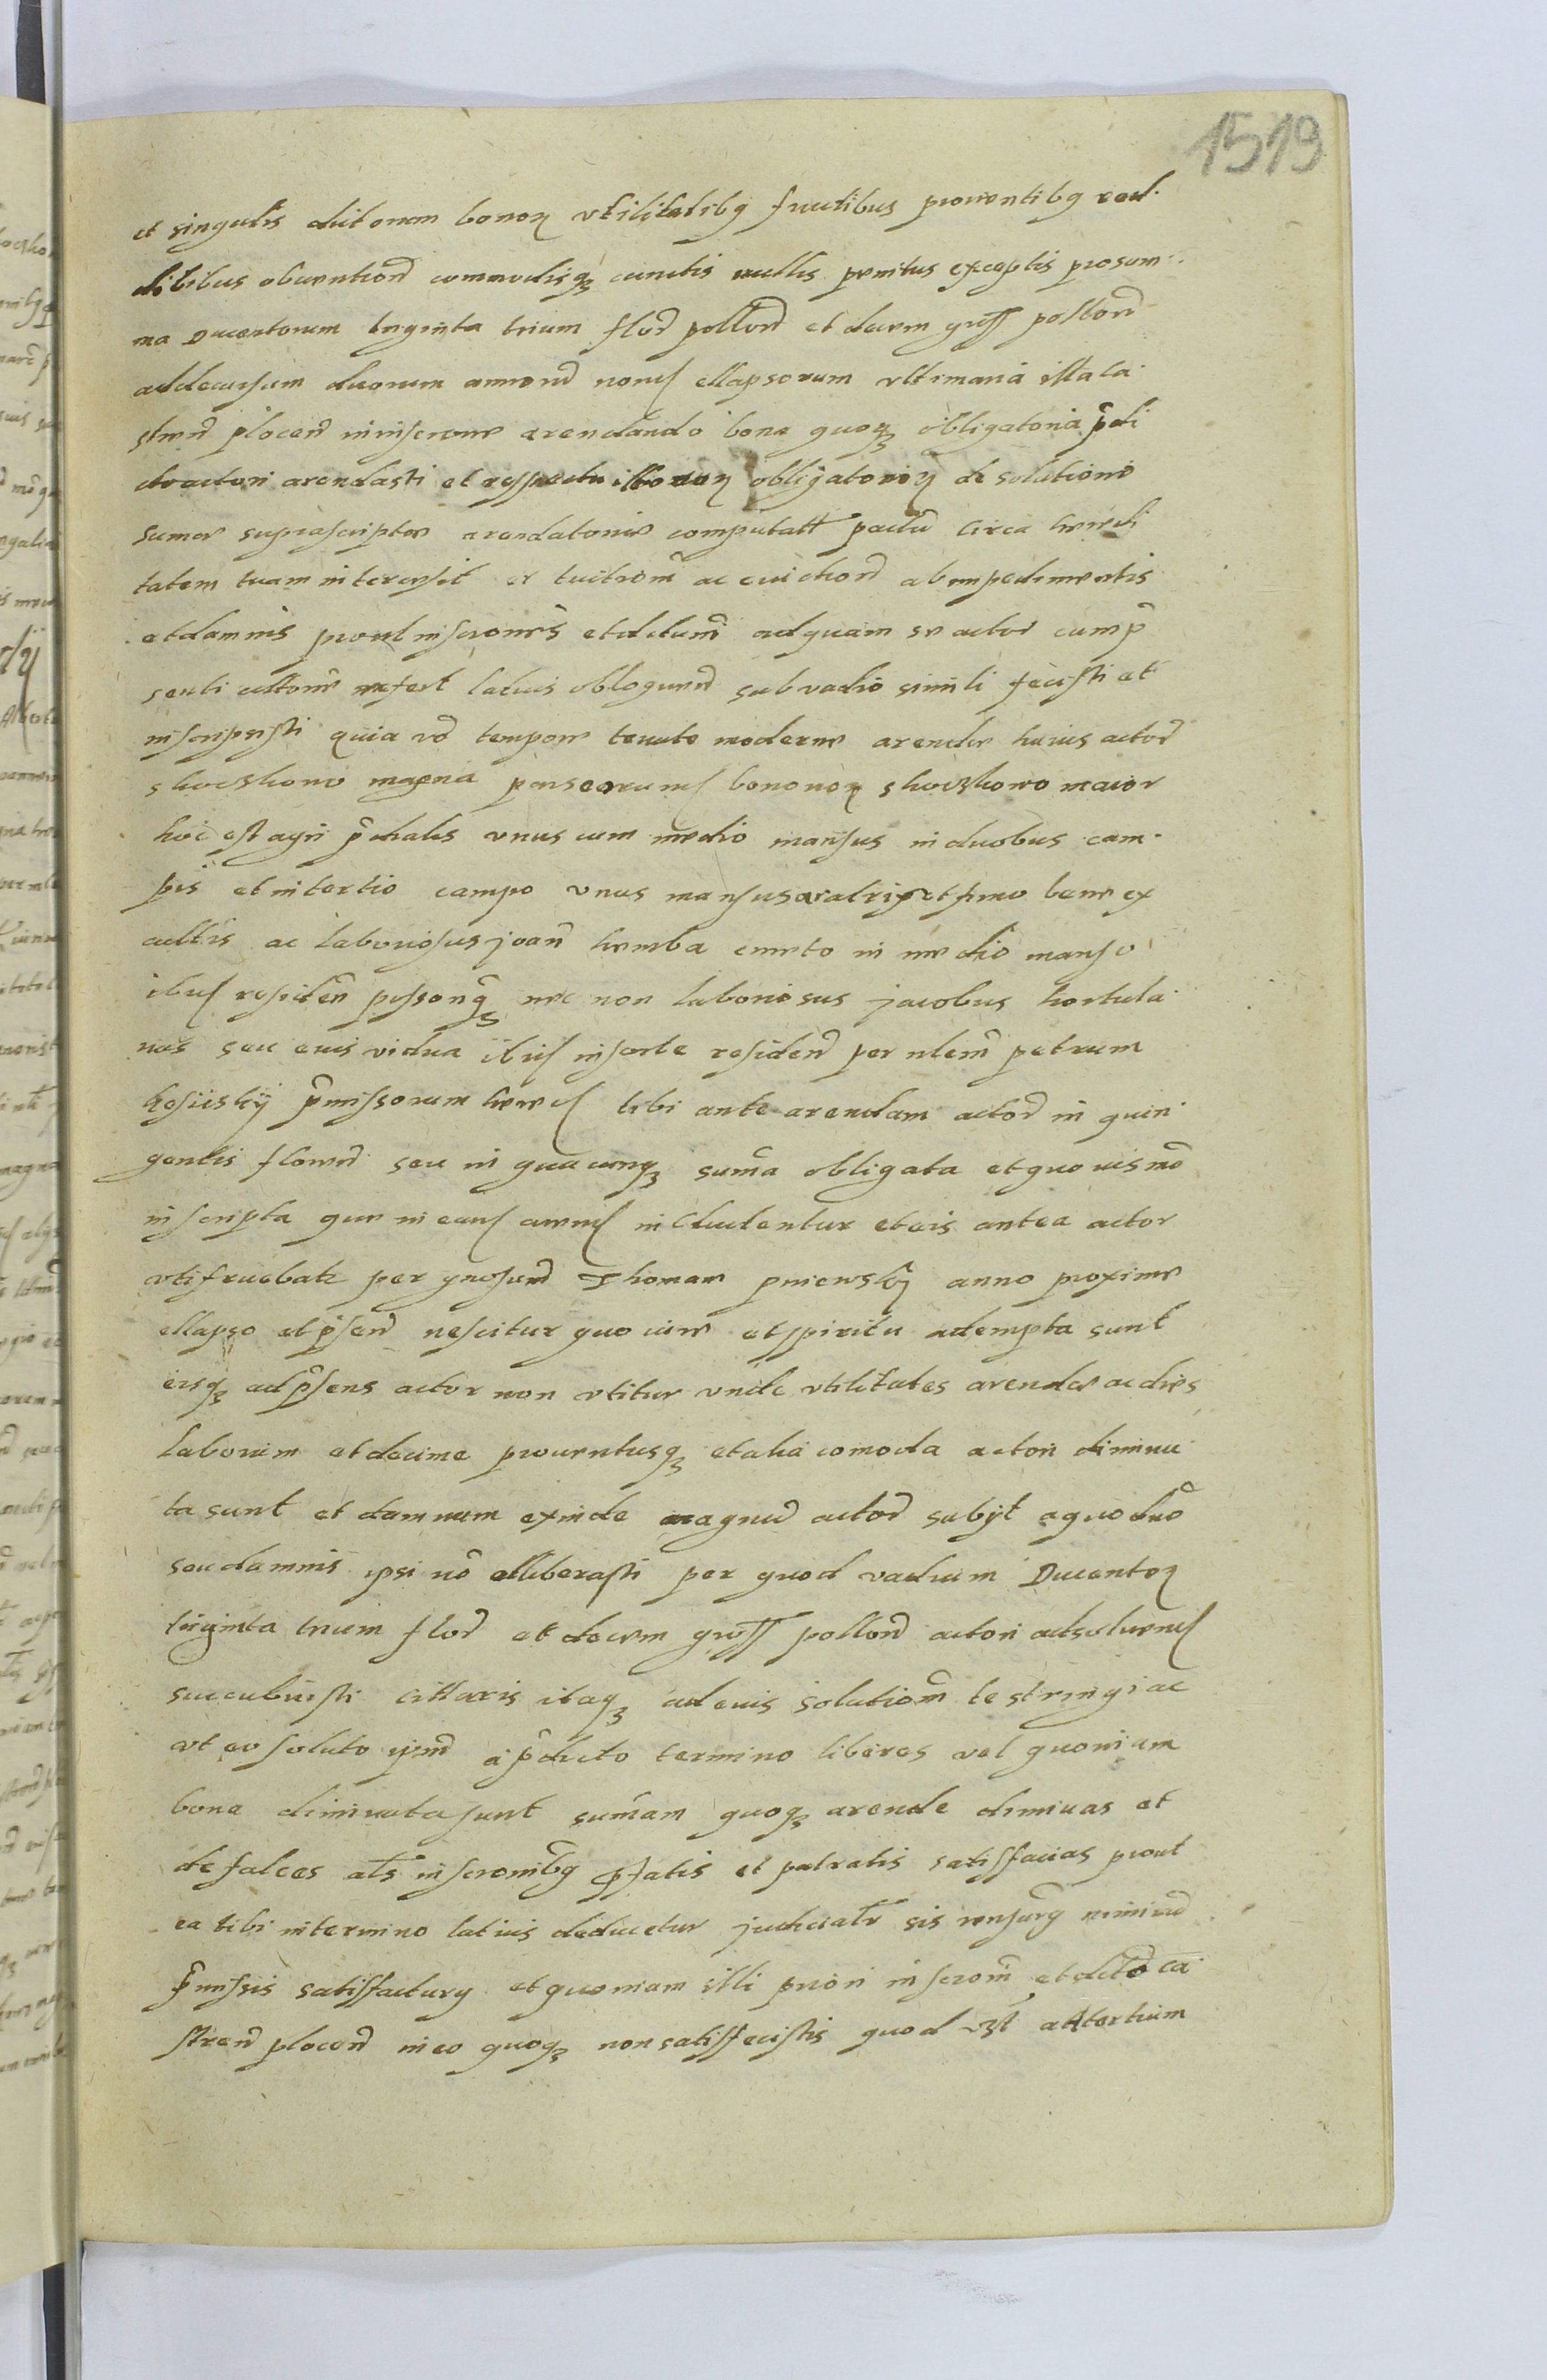 1519
et singulis dictorum bonorꝫ vtilitatibꝫ fructibus prouentibꝫ red
ditibus obuention commodisqꝫ cunctis nullis penitus exceptis pro sum
ma Ducentorum triginta trium flor pollon et decem gross pollon
ad decursum duorum annorum ellapsorum vltimaria illa ca
stren plocen in inscrone arendando bona quoqꝫ obligatoria p̃di
cto actori arendasti et respectu illorum bonorꝫ obligatoriorꝫ de solutione
sume suprascripte arendatorie computatt pactũ circa heredi
tatem tuam intercesit et tuitionẽ ac euiction ab impedimentis
et damnis prout inscrones et dictum ad quam se actor cum p̃
senti actione refert latius obloquen sub vadio simili fecisti et
inscripsisti quia vo tempore tenute moderne arende huius actor
skoczkowo magna bonorꝫ skoczkowo maior
hoc est agri p̃dialis vnus cum medio mansus in duobus cam
pis et in tertio campo vnus mansus aratris et fimo bene ex
cultis ac laboriosus joan kmetho in medio manso
ibidem residen personqꝫ nec non laboriosus jacobus hortula
nus seu euis vidua ibidem in sorte residen per nlem petrum
p̃missorum hered tibi ante arendam actor in quin
gentis floren seu in quacunqꝫ suma obligata et quouis mo
inscripta que in eam includentur et eis antea actor
vtifruebatr per gnosum Thomam pniewsky anno proxime
ellapso et p̃sen nescitur quo iure et spiritu adempta sunt
eisqꝫ ad p̃sens actor non vtitur vnde vtilitates arende ac dies
laborum et decime prouentusqꝫ et alia comoda actori diminu
ta sunt et damnum exinde magnu actor subijt a quo dno
seu damnis ipsi nõ elliberasti per quod vadium Ducentorꝫ
triginta trium flor et decem gross pollon actori ad soluend
succubuisti cittaris itaqꝫ ad euis solutionẽ te stringi ac
vt eo soluto ipsum a p̃dicto termino liberes vel quoniam
bona diminuta sunt sumam quoqꝫ arende diminuas et
defalces als inscronibꝫ p̃fatis et patratis satisfacias prout
ea tibi in termino latius deducetur judicialr sis rensurꝫ
p̃missis satisfacturꝫ et quoniam illi priori inscronĩ et dicto ca
stren plocen in eo quoqꝫ non satisfecistis quod ad tertium